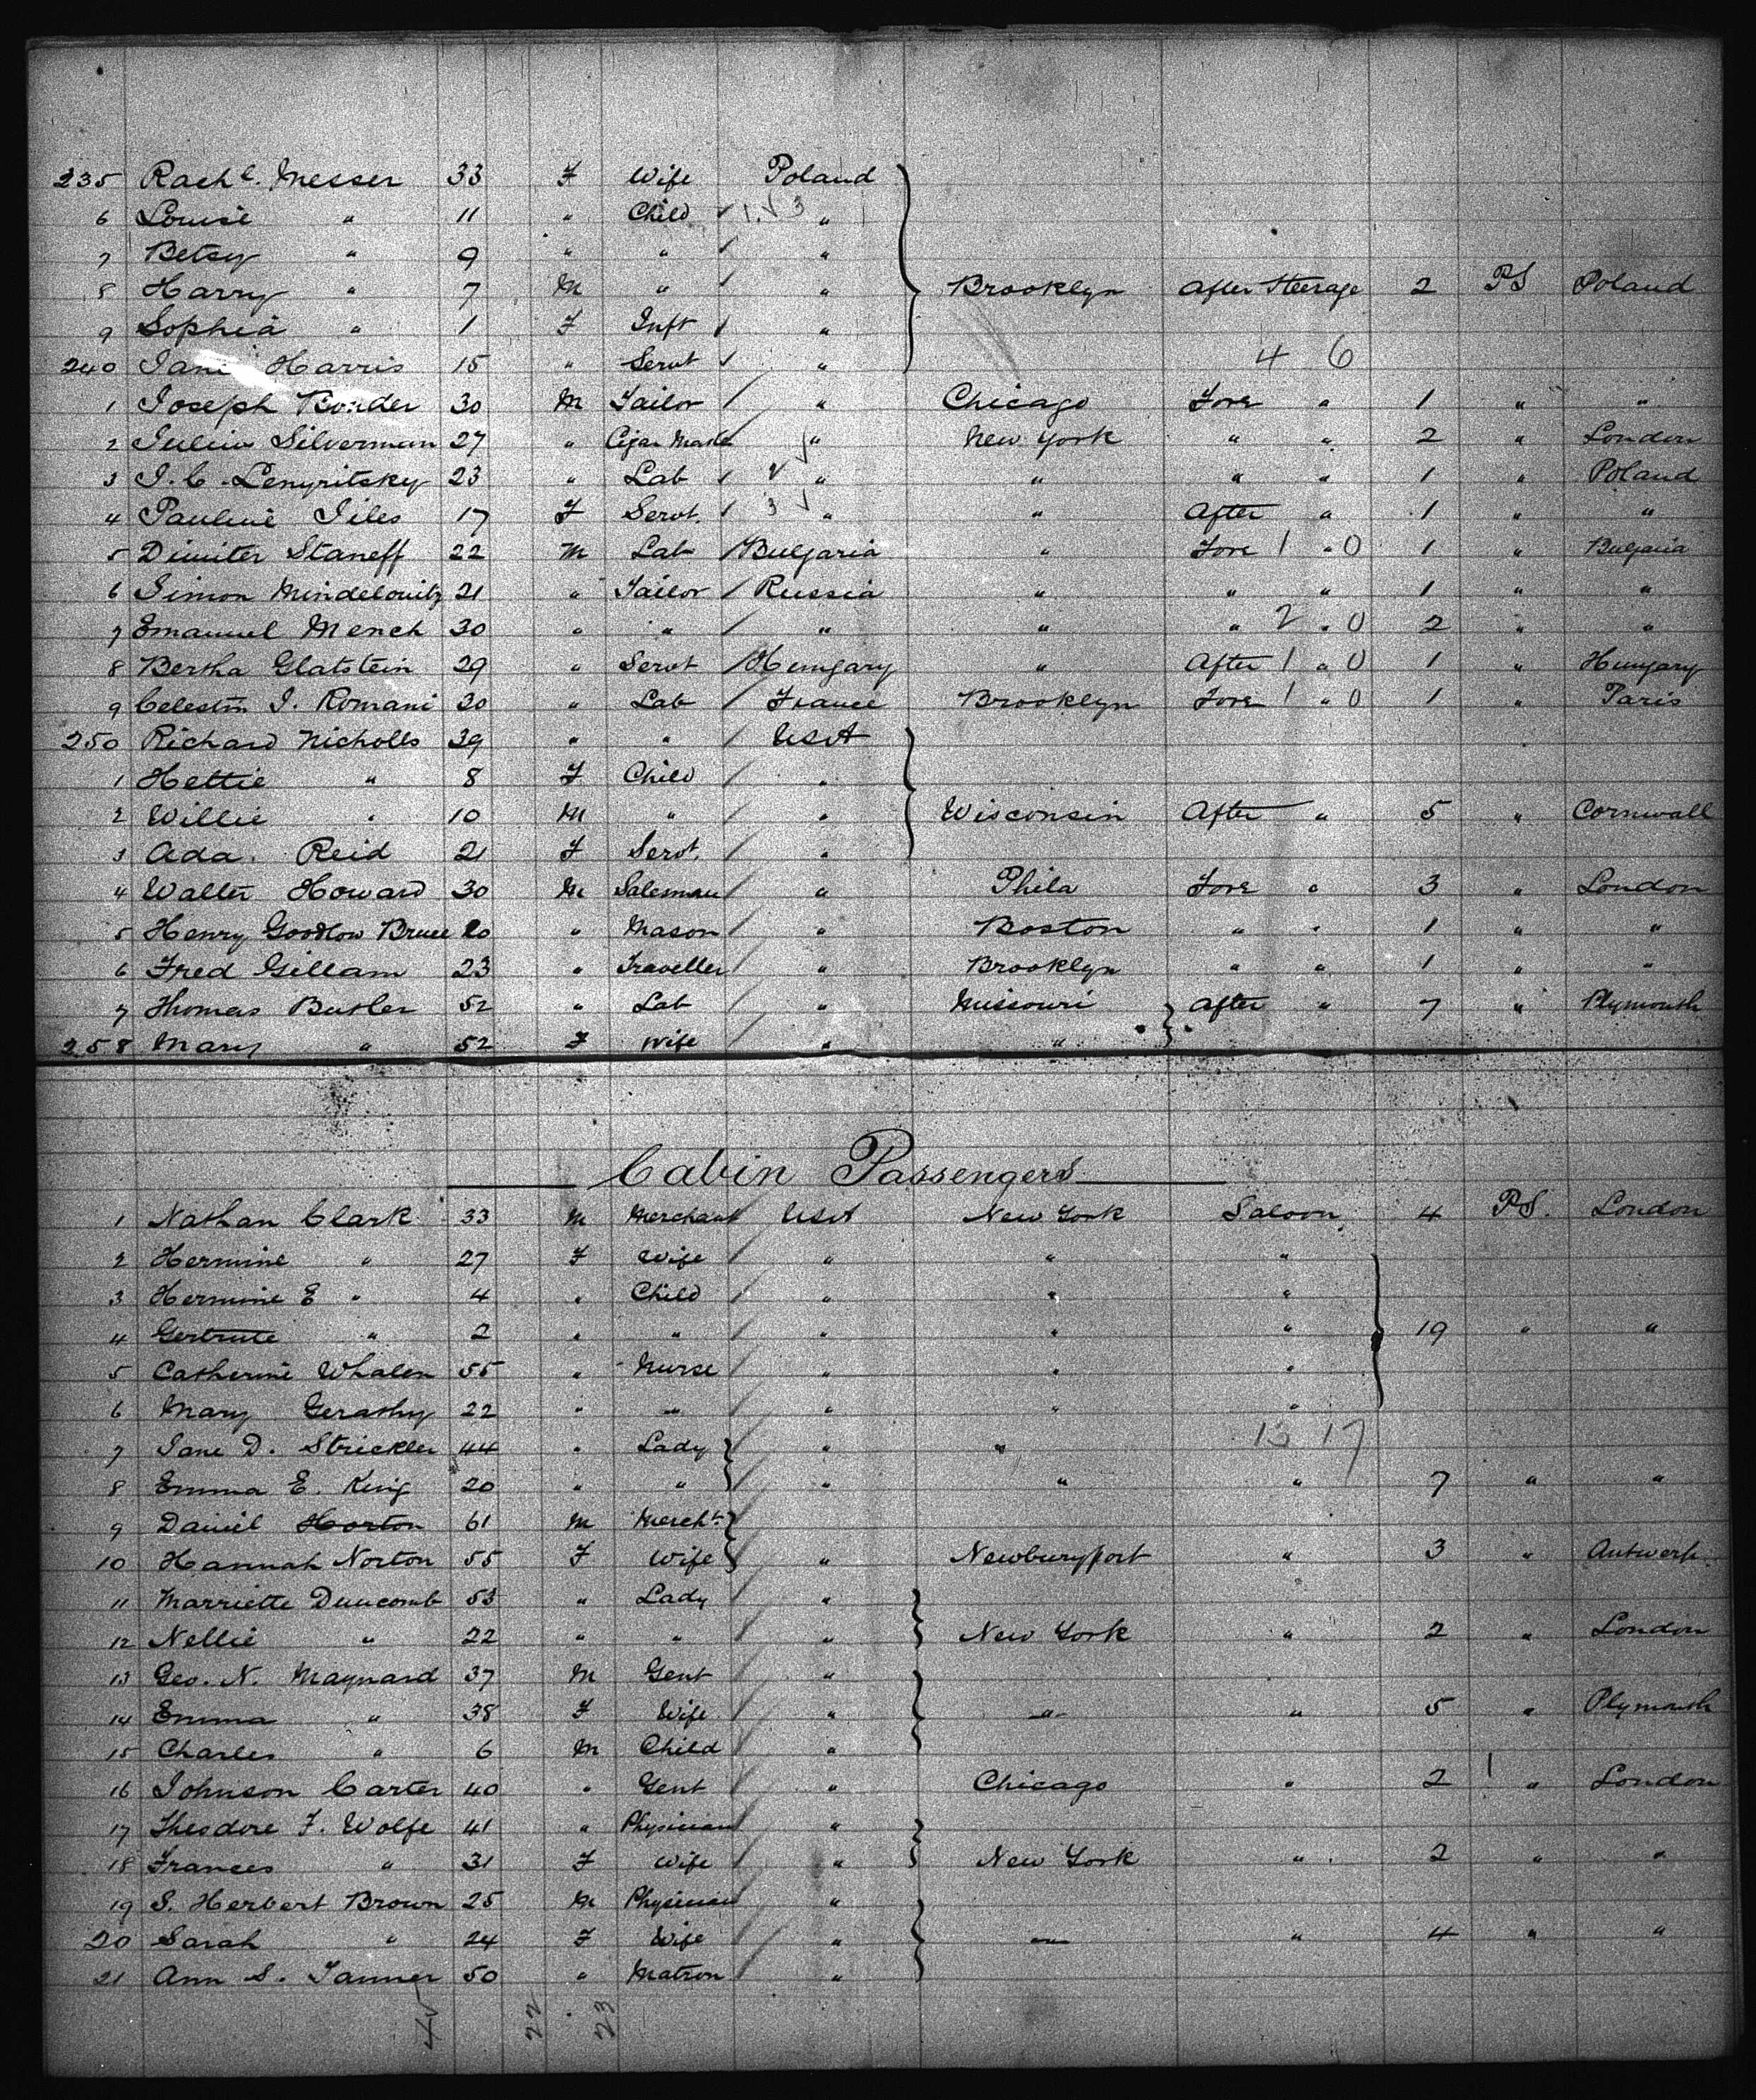 235 Rachl. Messer 33 F Wife Poland
6 Louise " 11 " Child "
7 Betsy " 9 " " "
8 Harry " 7 M " " Brooklyn After Steerage 2 PS Poland
9 Sophia " 1 F Inft "
240 Jane Harris 15 " Servt " 4 6
1 Joseph Bonder 30 M Tailor " Chicago Fore " 1 " "
2 Julius Silverman 27 " Cigar Maker " New York " " 2 " London
3 I. C. 23 " Lab " " " " 1 " Poland
4 Pauline Siles 17 F Servt. " " After " 1 " "
5 Dimiter Staneff 22 M Lab Bulgaria " Fore 1 " 0 1 " Bulgaria
6 Simon Mindelowitz 21 " Tailor Russia " " " 1 " "
7 Emanuel Mench 30 " " " " " 2 " 0 2 " "
8 Bertha Glatstein 29 " Servt Hungary " After 1 " 0 1 " Hungary
9 Celestin J. Romani 30 " Lab France Brooklyn Fore 1 " 0 1 " Paris
250 Richard Nicholls 39 " " USA
1 Hettie " 8 F Child "
2 Willie " 10 M " " Wisconsin After " 5 " Cornwall
3 Ada. Reid 21 F Servt. "
4 Walter Howard 30 M Salesman " Phila Fore " 3 " London
5 Henry Goodlow Bruce 20 " Mason " Boston " " 1 " "
6 Fred Gillam 23 " Traveller " Brooklyn " " 1 " "
7 Thomas Butler 52 " Lab " Missouri After " 7 " Plymouth
258 Mary " 52 F Wife " "
Cabin Passengers
1 Nathan Clark 33 M Merchant USA New York Saloon 4 PS. London
2 Hermine " 27 F Wife " " "
3 Hermine E " 4 " Child " " "
4 Gertrute " 2 " " " " " 19 " "
5 Catherine Whalen 55 " Nurse " " "
6 Mary Gerathy 22 " " " " "
7 Jane D. Strickler 44 " Lady " " 13 17
8 Emma E. King 20 " " " " " 7 " "
9 Daniel Horton 61 M Mercht.
10 Hannah Norton 55 F Wife " Newburyport " 3 " Antwerp.
11 Marriette Duncomb 53 " Lady "
12 Nellie " 22 " " " New York " 2 " London
13 Geo. N. Maynard 37 M Gent "
14 Emma " 38 F Wife " " " 5 " Plymouth
15 Charles " 6 M Child "
16 Johnson Carter 40 " Gent " Chicago " 2 " London
17 Theodore F. Wolfe 41 " Physician "
18 Frances " 31 F Wife " New York " 2 " "
19 S. Herbert Brown 25 M Physician "
20 Sarah " 24 F Wife " " " 4 " "
21 Ann S. Tanner 50 " Matron "
45 22 23